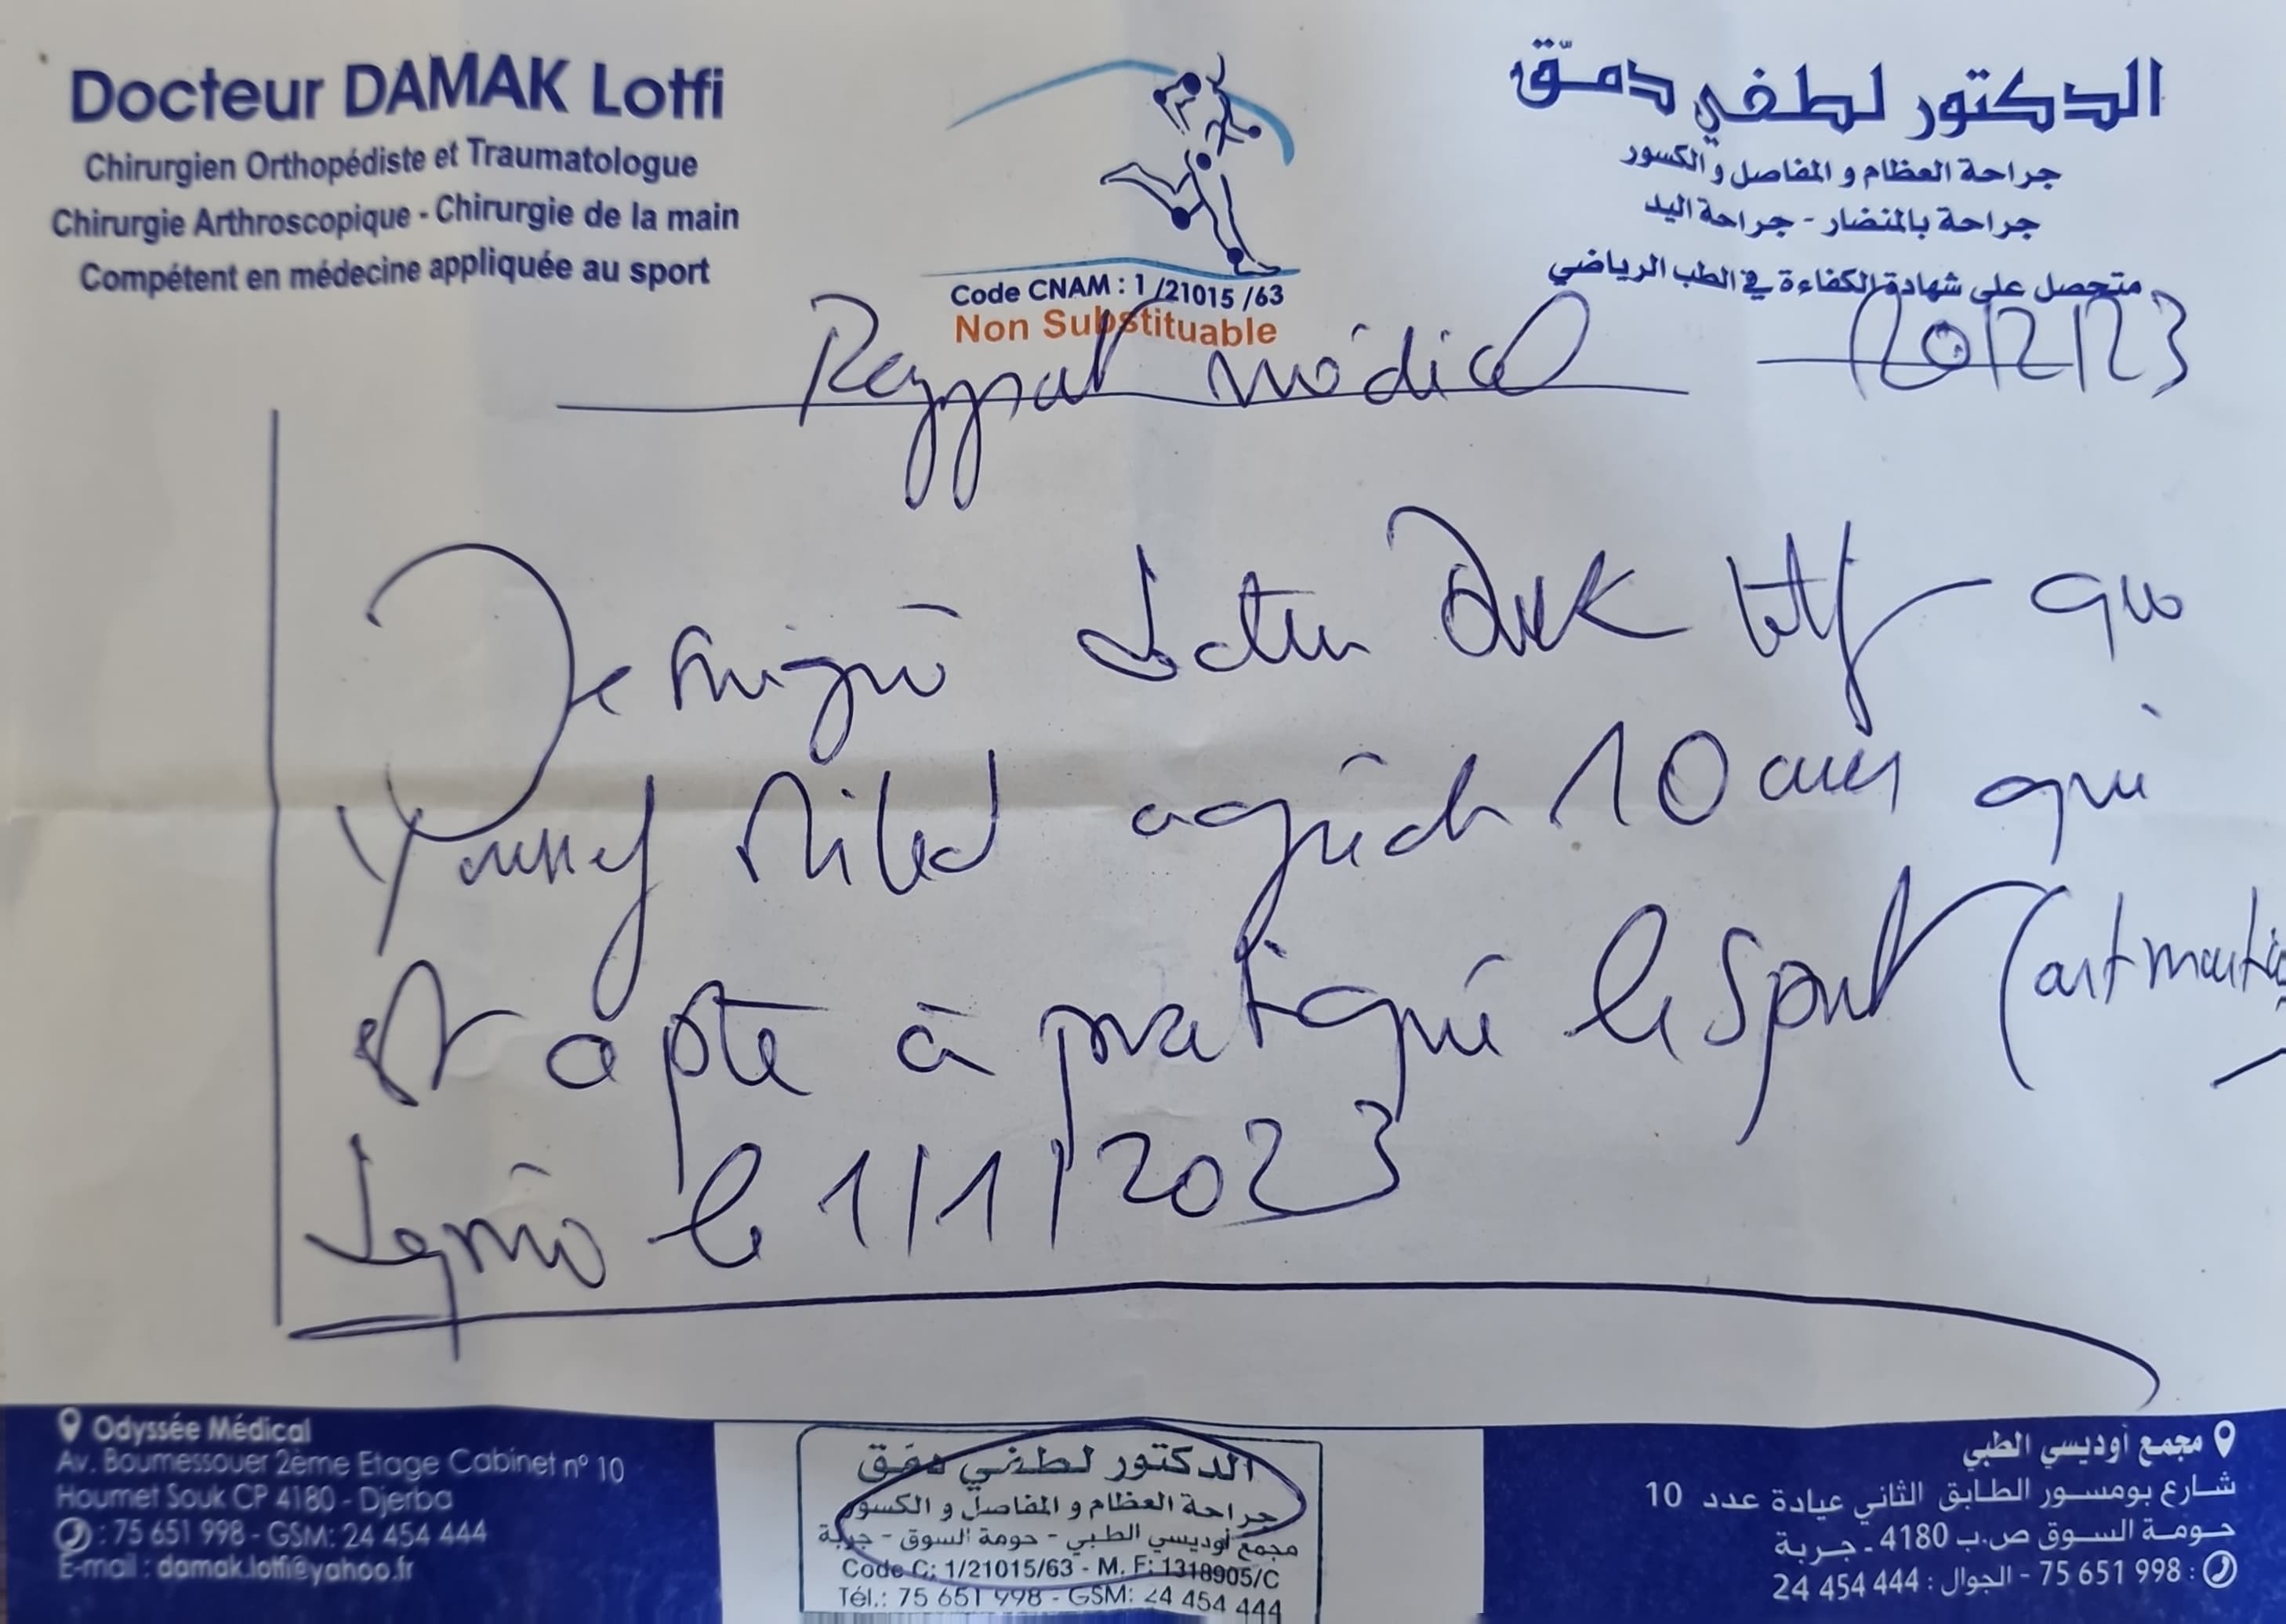 Docteur DAMAK Lotfi
Chirurgien Orthopédiste et Traumatologue
Chirurgie Arthroscopique - Chirurgie de la main
Compétent en médecine appliquée au sport
Code CNAM : 1 /21015 /63
Non Substituable
الدكتور لطفي دمّق
جراحة العظام و المفاصل و الكسور
جراحة بالمنضار - جراحة اليد
متحصل على شهادة الكفاءة في الطب الرياضي
Rapport médical
Je soussigné docteur Damak Lotfi que
Youssef Miled agé de 10 ans qui
est apte à pratiqué le sport (art martia
depuis le 1/1/2023
Odyssée Médical
Av. Boumessouer 2ème Etage Cabinet n° 10
Houmet Souk CP 4180 - Djerba
: 75 651 998 - GSM: 24 454 444
E-mail : damak.lotfi@yahoo.fr
الدكتور لطفي دمق
جراحة العظام و المفاصل و الكسور
مجمع أوديسي الطبي - حومة السوق - جربة
Code C: 1/21015/63 - M. F: 1318905/C
Tél.: 75 651 998 - GSM: 24 454 444
مجمع أوديسي الطبي
شارع بومسور الطابق الثاني عيادة عدد 10
حومة السوق ص.ب 4180 - جربة
: 75 651 998 - الجوال : 24 454 444